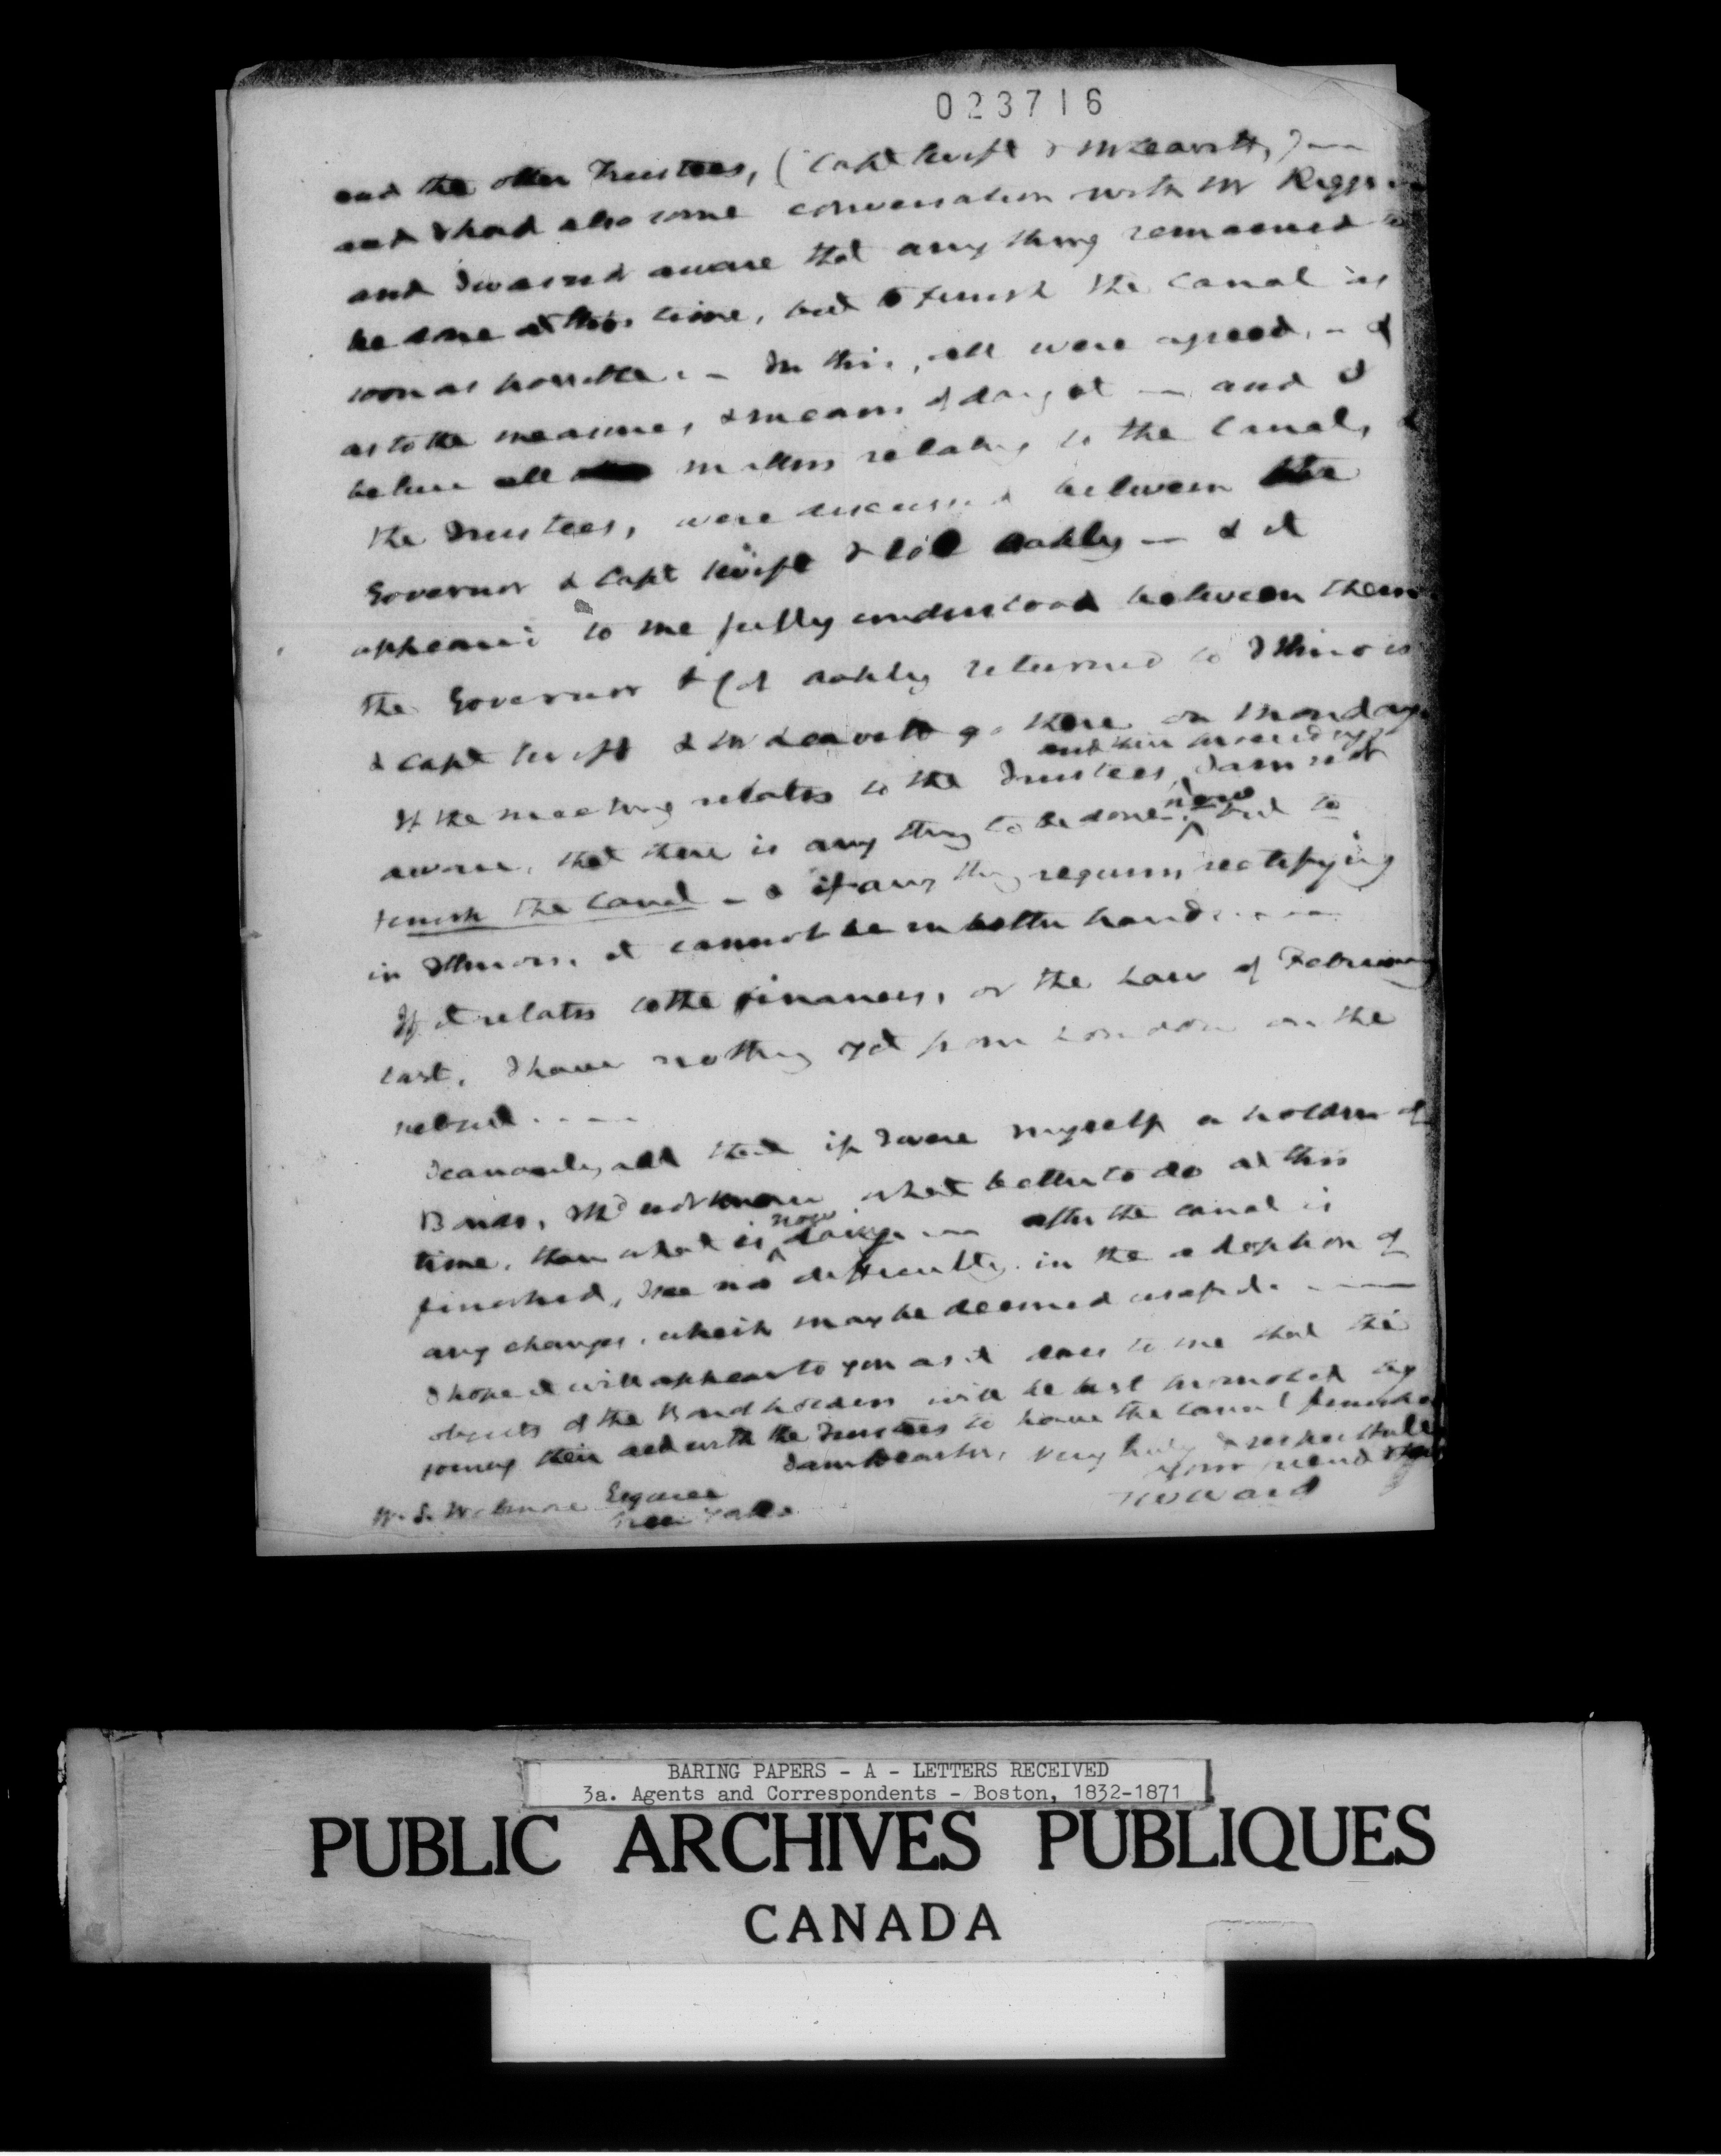 023716
and the other Trustees, (Capt Swift & Mr Leavitt,)
and I had also some conversation with Mr Riggs
and I was not aware that any thing remained to
be done at this time, but to finish the Canal as
soon as possible. - In this, all were agreed, - &
as to the measures, & means of doing it — and I
believe all matters relating to the Canal, &
the Trustees, were discussed between the
Governor & Capt Swift & Col Oakley — & it
appeared to me fully understood between them
the Governor & Col Oakley returned to Illinois
& Capt Swift & Mr Leavitt go there on Monday.
and their proceedings
If the meeting relates to the Trustees, I am not
now
aware, that there is any thing to be done, but to
finish the Canal - & if any thing requires rectifying
in Illinois, it cannot be in better hands.
If it relates to the finances, or the Law of February
last, I have nothing yet from London on the
subject.
I can only add that if I were myself a holder of
Bonds, I shd not know what better to do at this
now
time, than what is doing — after the canal is
finished, I see no difficulty in the adoption of
any changes, which may be deemed useful.
I hope it will appear to you as it does to me that the
objects of the Bond holders will be best promoted by
joining their aid with the Trustees to have the Canal finished
I am Dear Sir, very truly & respectfully
your friend &
T W Ward
W. S. Wetmore Esquire
New York
BARING PAPERS - A - LETTERS RECEIVED
3a. Agents and Correspondents - Boston, 1832-1871
PUBLIC ARCHIVES PUBLIQUES
CANADA